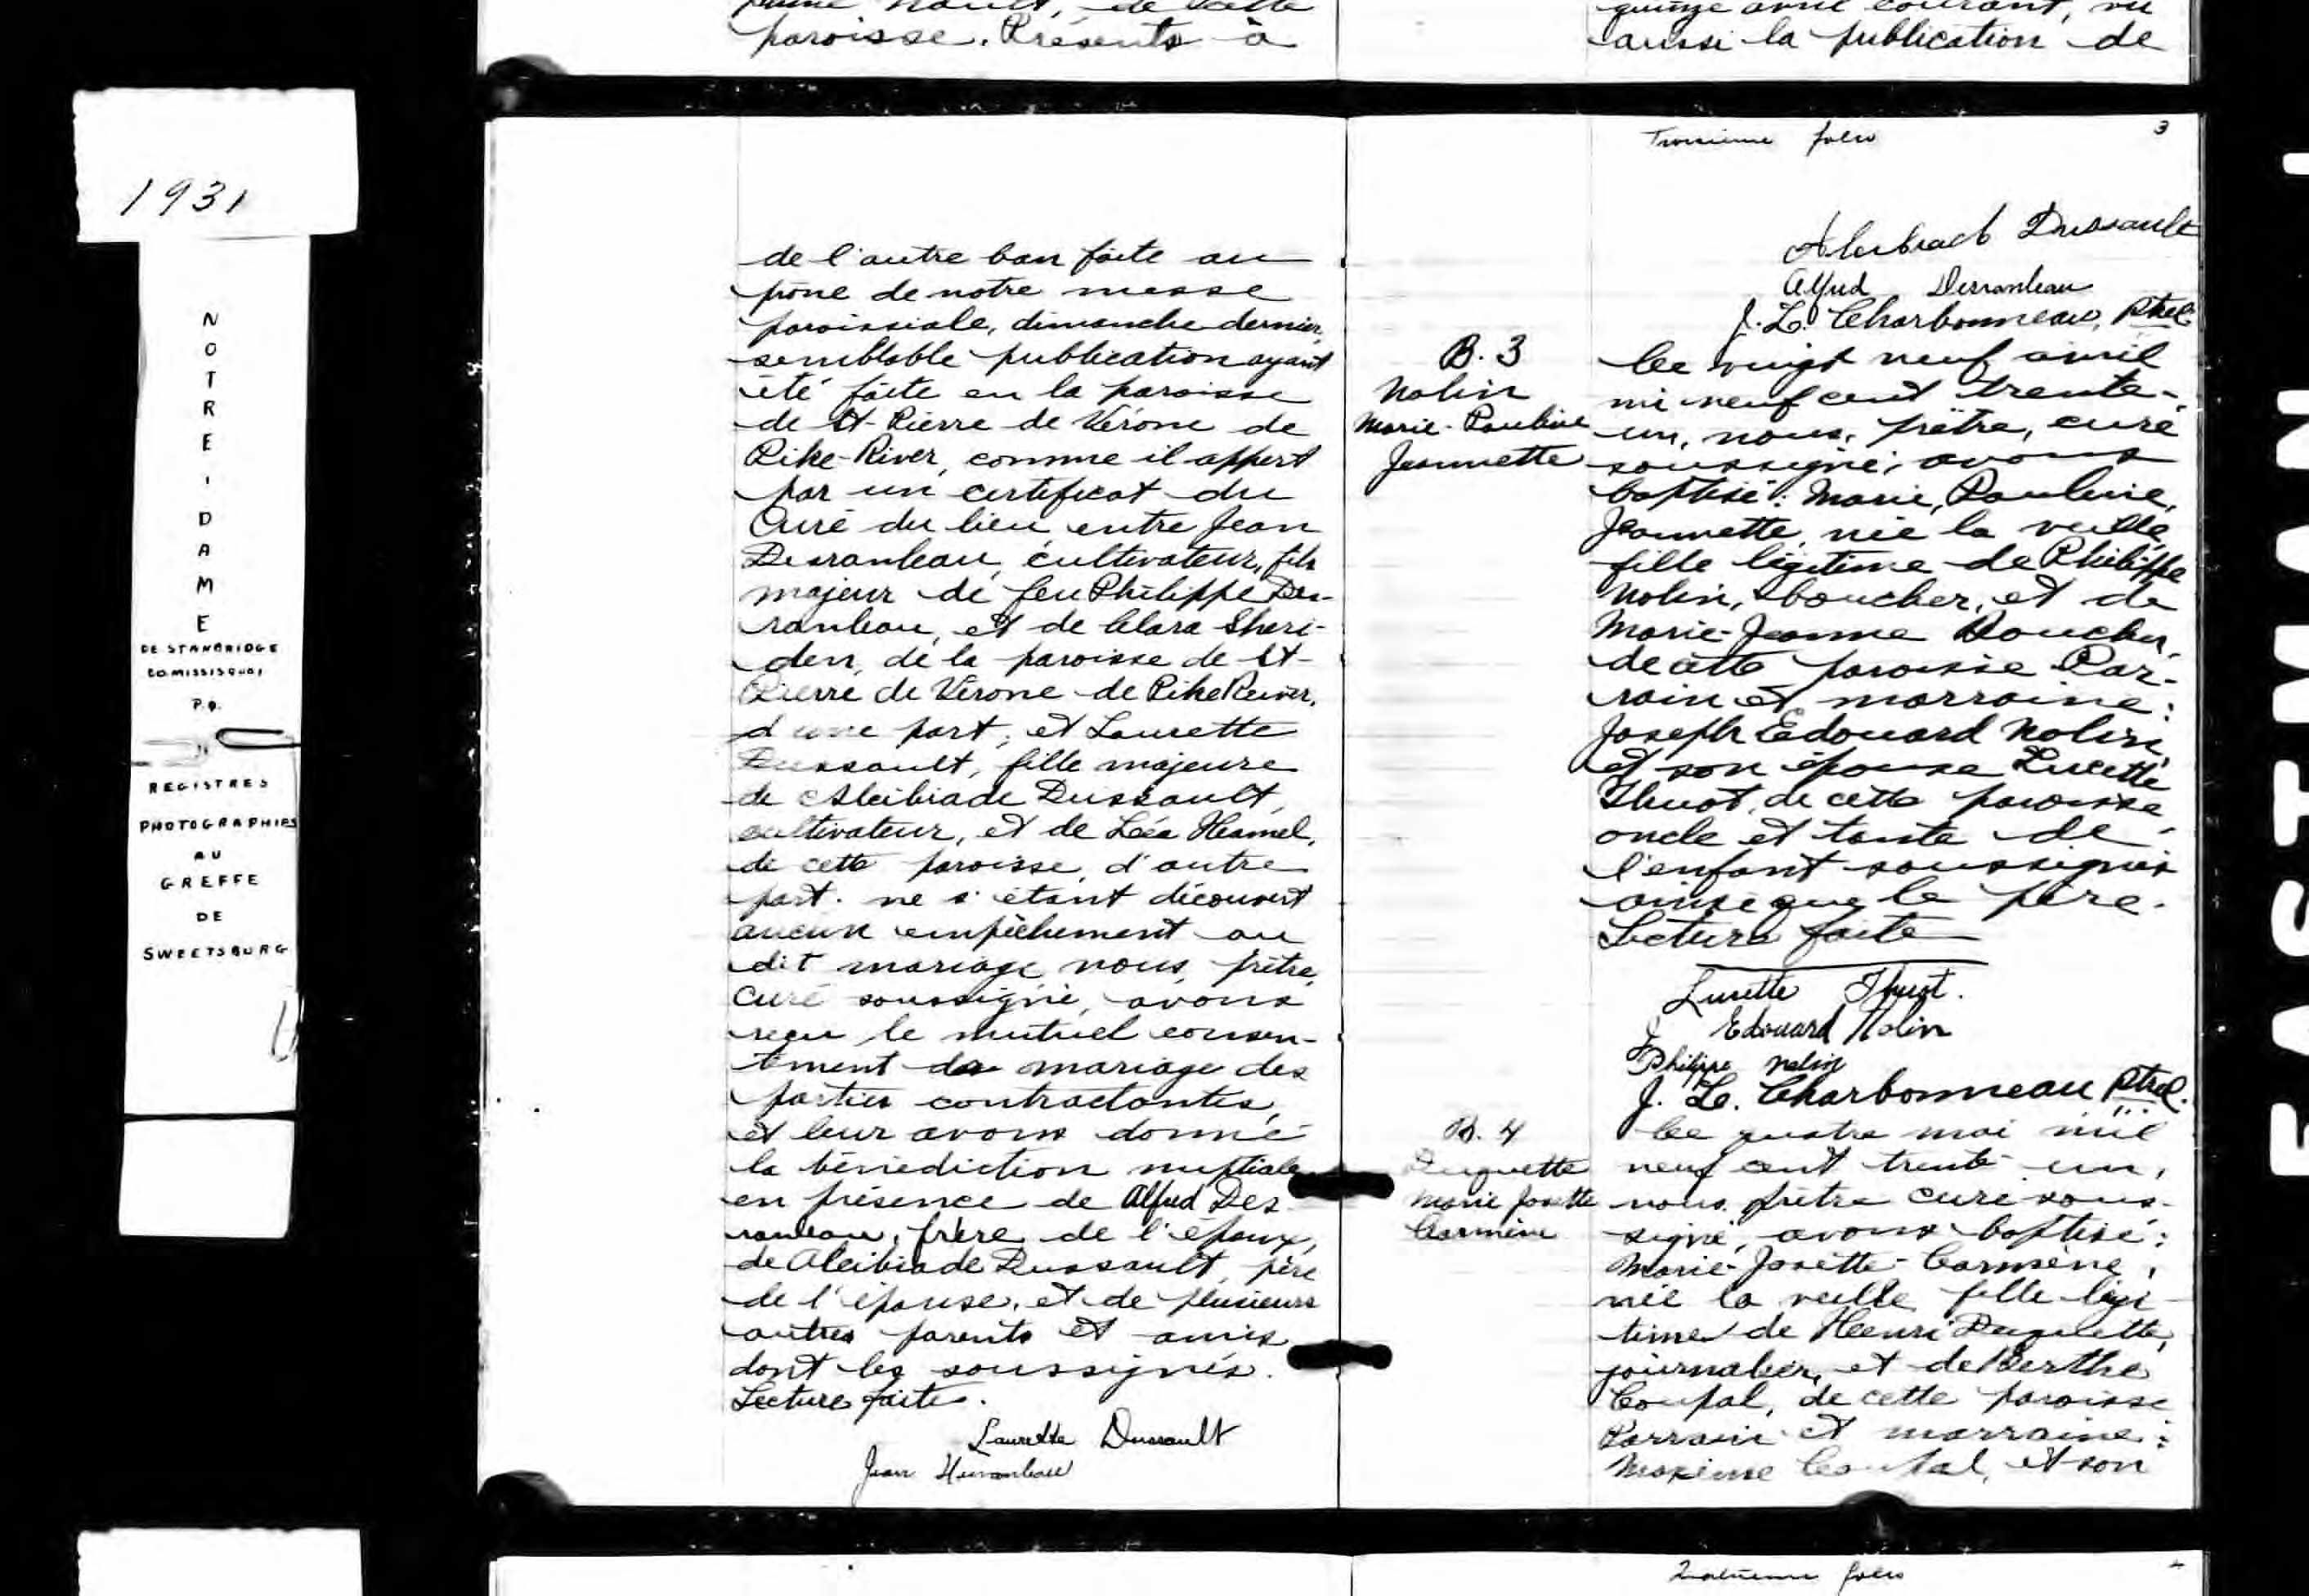 paroisse. Présents à
aussi la publication de
1931
NOTRE-DAME
DE STANBRIDGE
CO MISSISQUOI
P.Q.
REGISTRES
PHOTOGRAPHIES
AU
GREFFE
DE
SWEETSBURG
de l'autre ban faite au
prône de notre messe
paroissiale, dimanche dernier,
semblable publication ayant
été faite en la paroisse
de St-Pierre de Vérone de
Pike-River, comme il appert
par un certificat du
Curé du lieu, entre Jean
Desranleau, cultivateur, fils
majeur de feu Philippe Des-
ranleau, et de Clara Sheri-
den, de la paroisse de St-
Pierre de Vérone de Pike River,
d'une part, et Laurette
Dussault, fille majeure
de Alcibiade Dussault,
cultivateur, et de Léa Hamel,
de cette paroisse, d'autre
part. ne s'étant découvert
aucun empêchement au
dit mariage nous, prêtre,
Curé soussigné, avons
reçu le mutuel consen-
tment de mariage des
parties contractantes,
et leur avons donné
la bénédiction nuptiale
en présence de Alfred Des-
ranleau, frère de l'époux,
de Alcibiade Dussault, père
de l'épouse, et de plusieurs
autres parents et amis
dont les soussignés.
Lecture faite.
Laurette Dussault
Jean Desranleau
Troisième folio 3
Dussault
Alfred Desranleau
J. L. Charbonneau, Ptre
B. 3
Nolin
Marie-Pauline
Jeannette
Le vingt neuf avril
mi neuf cent trente-
un, nous, prêtre, curé
soussigné, avons
baptisé: Marie, Pauline,
Jeannette, née la veille,
fille légitime de Philippe
Nolin, boucher, et de
Marie-Jeanne Boucher,
de cette paroisse Par-
rain et marraine:
Joseph Edouard Nolin
et son épouse Lucette
Thuot, de cette paroisse,
oncle et tante de
l'enfant soussignés
ainsi que le père.
Lecture faite
Lucette Thuot.
J Edouard Nolin
Philippe Nolin
J. L. Charbonneau Ptre.
B. 4
Duquette
Marie Josette
Carmène
Le quatre mai mil
neuf cent trente-un,
nous, prêtre curé sous-
signé, avons baptisé:
Marie-Josette-Carmène,
née la veille, fille légi-
time de Henri Duquette,
journalier, et de Berthe
Coupal, de cette paroisse
Parrain et marraine:
Maxime Coupal, et son
Quatrième folio 4
EASTMAN